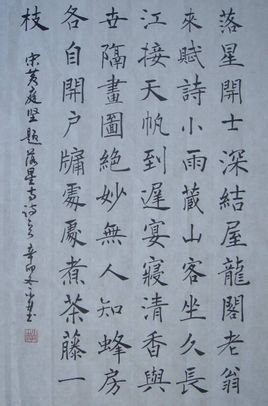 落星開士深結屋龍閣老翁
來賦詩小雨藏山客坐久長
江接天帆到遲宴寢清香與
世隔畫圖絕妙無人知蜂房
各自開戶牖處處煮茶藤一
枝
宋黄庭坚題落星寺詩 辛卯冬